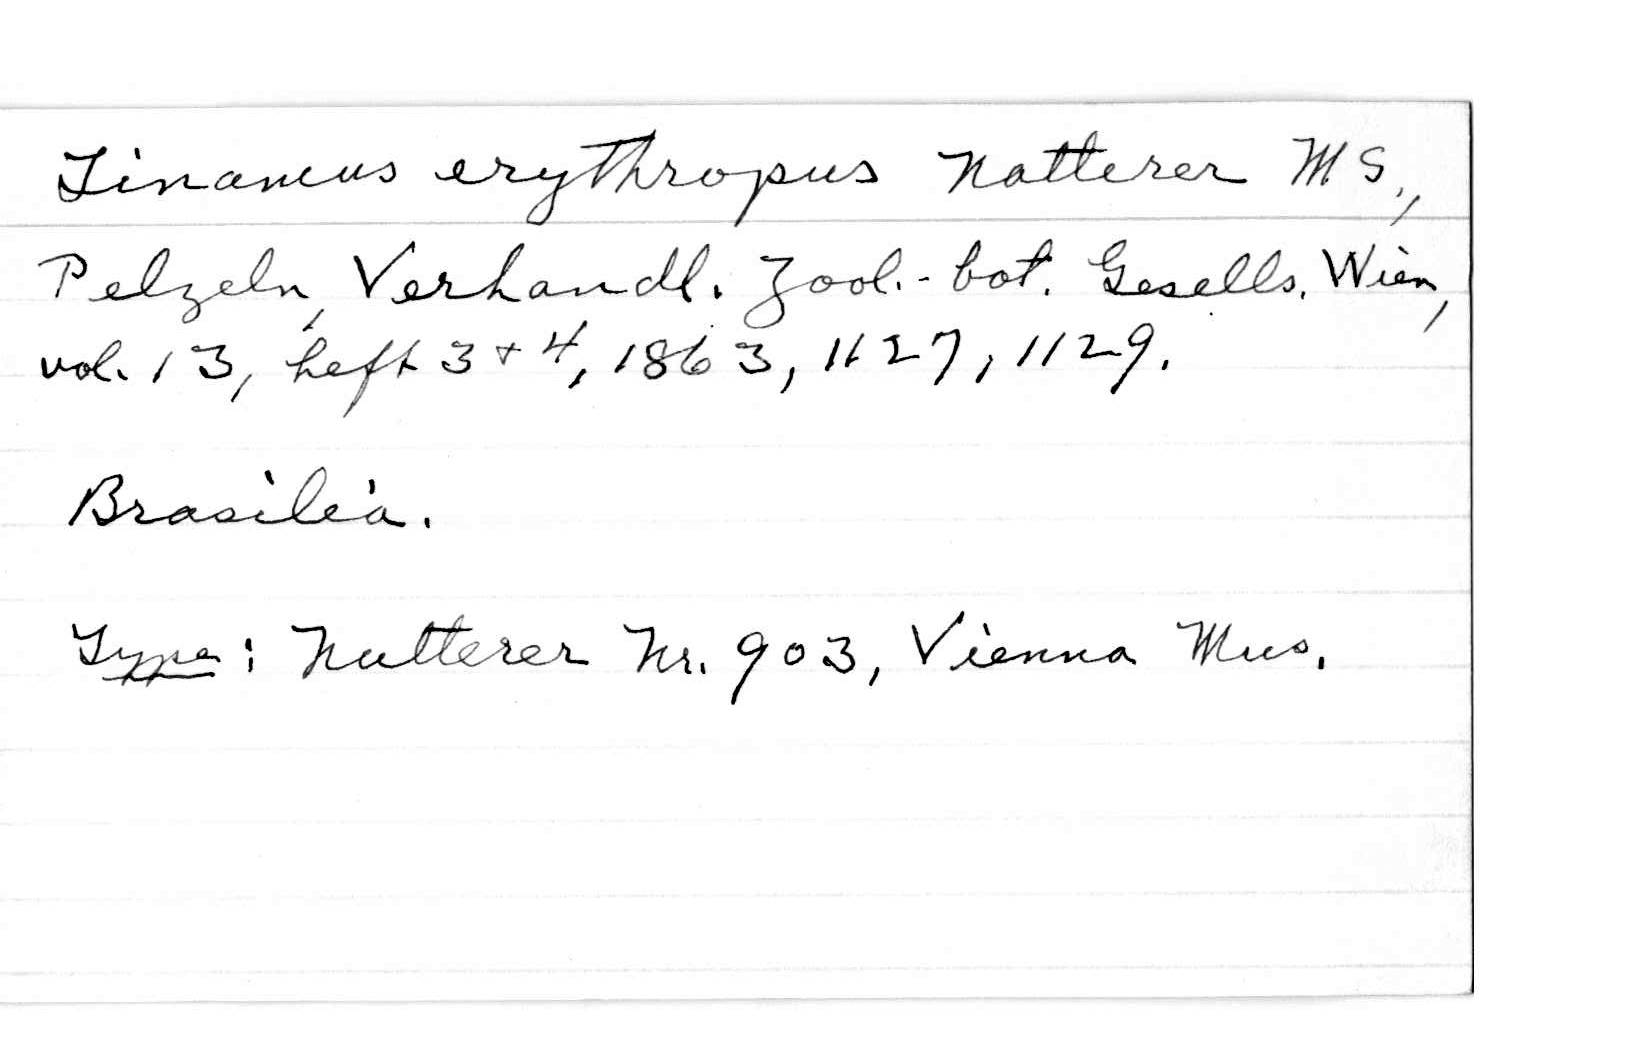 Tinamus erythropus Natterer MS.,
Pelzeln, Verhandl. Zool.-bot. Gesells. Wien,
vol. 13, heft 3 + 4, 1863, 1127, 1129.
Brasilia.
Type: Natterer Nr. 903, Vienna Mus.